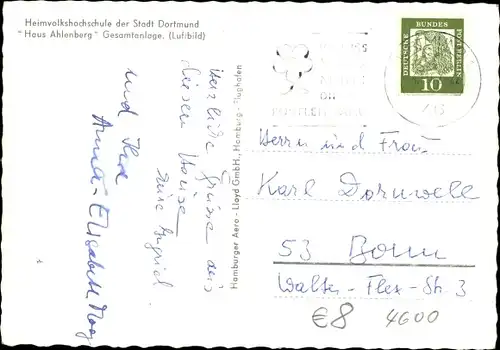 Heimvolkshochschule der Stadt Dortmund
"Haus Ahlenberg" Gesamtanlage. (Luftbild)
Herzliche Grüsse aus
diesem Hause
Eure Ingrid
und Ihre
Anna-Elisabeth
Hamburger Aero-Lloyd GmbH., Hamburg-Flughafen
DEUTSCHE BUNDES POST BERLIN
10
Herrn und Frau
Karl Dornwele
53 Bonn
Walter-Flex-Str. 3
€8 4600